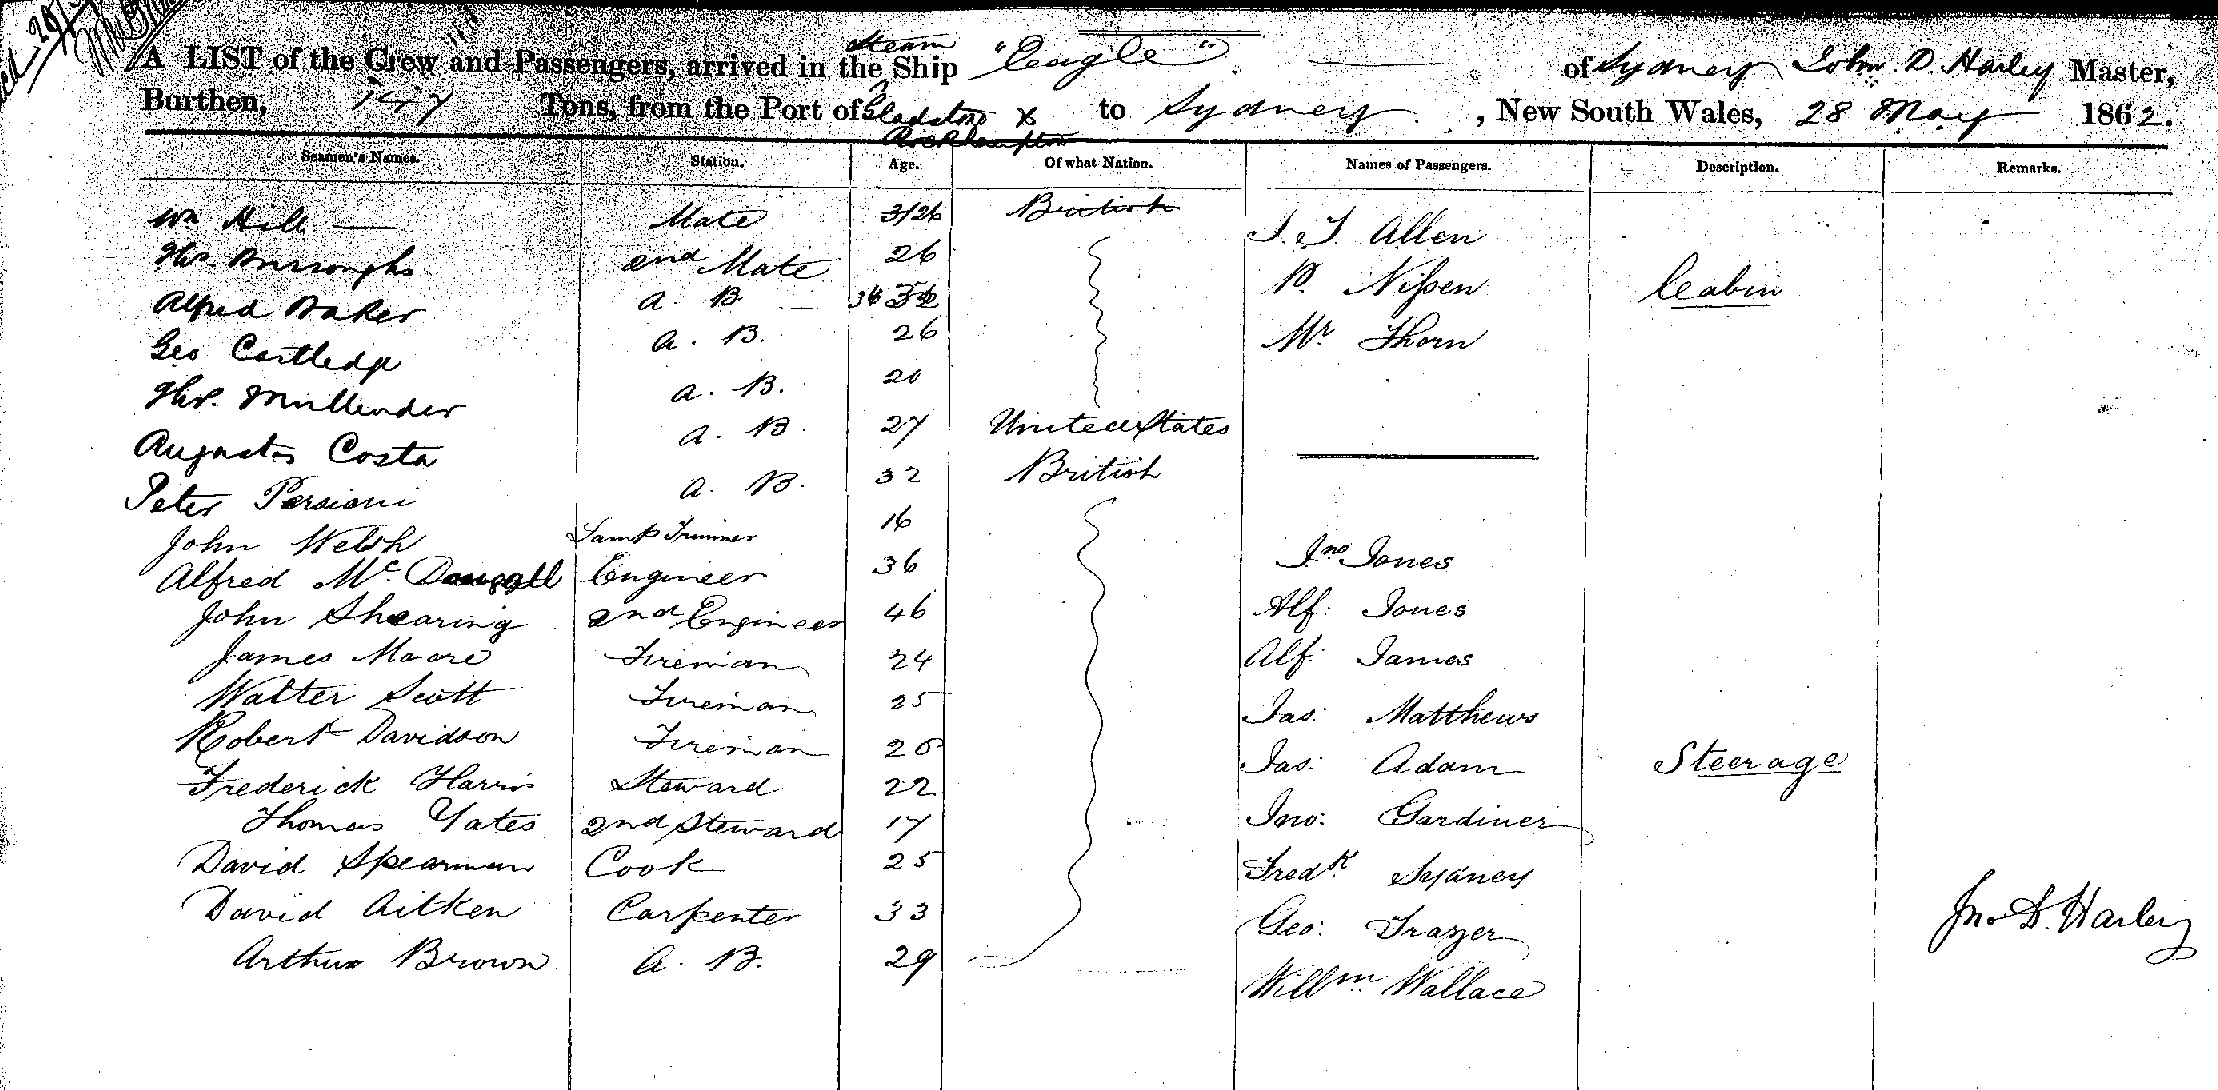 A LIST of the Crew and Passengers, arrived in the steam Ship "Eagle" of Sydney John D. Harley Master,
Burthen, Tons, from the Port of Gladstone & Rockhampton to Sydney, New South Wales, 28 May 1862.
Seamen's Names. Station. Age. Of what Nation. Names of Passengers. Description. Remarks.
Wm Hill Mate British J. J. Allen
Thos. Burroughs 2nd Mate 26 P. Nissen Cabin
Alfred Baker A. B.
Geo Cartledge A. B. 26 Mr Thorn
Thos. Mullender A. B. 20
Augustus Costa A. B. 27 United States
Peter Persiani A. B. 32 British
John Welsh Lamp Trimmer 16 Jno Jones
Alfred Mc Dougall Engineer 36
John Shearing 2nd Engineer 46 Alf: Jones
James Moore Fireman 24 Alf: James
Walter Scott Fireman 25 Jas: Matthews
Robert Davidson Fireman 26 Jas: Adam Steerage
Frederick Harris Steward 22
Thomas Yates 2nd Steward 17 Jno: Gardiner
David Spearman Cook 25 Fredk Sydney
David Aitken Carpenter 33 Geo: Frazer Jno D. Harley
Arthur Brown A. B. 29 Willm Wallace